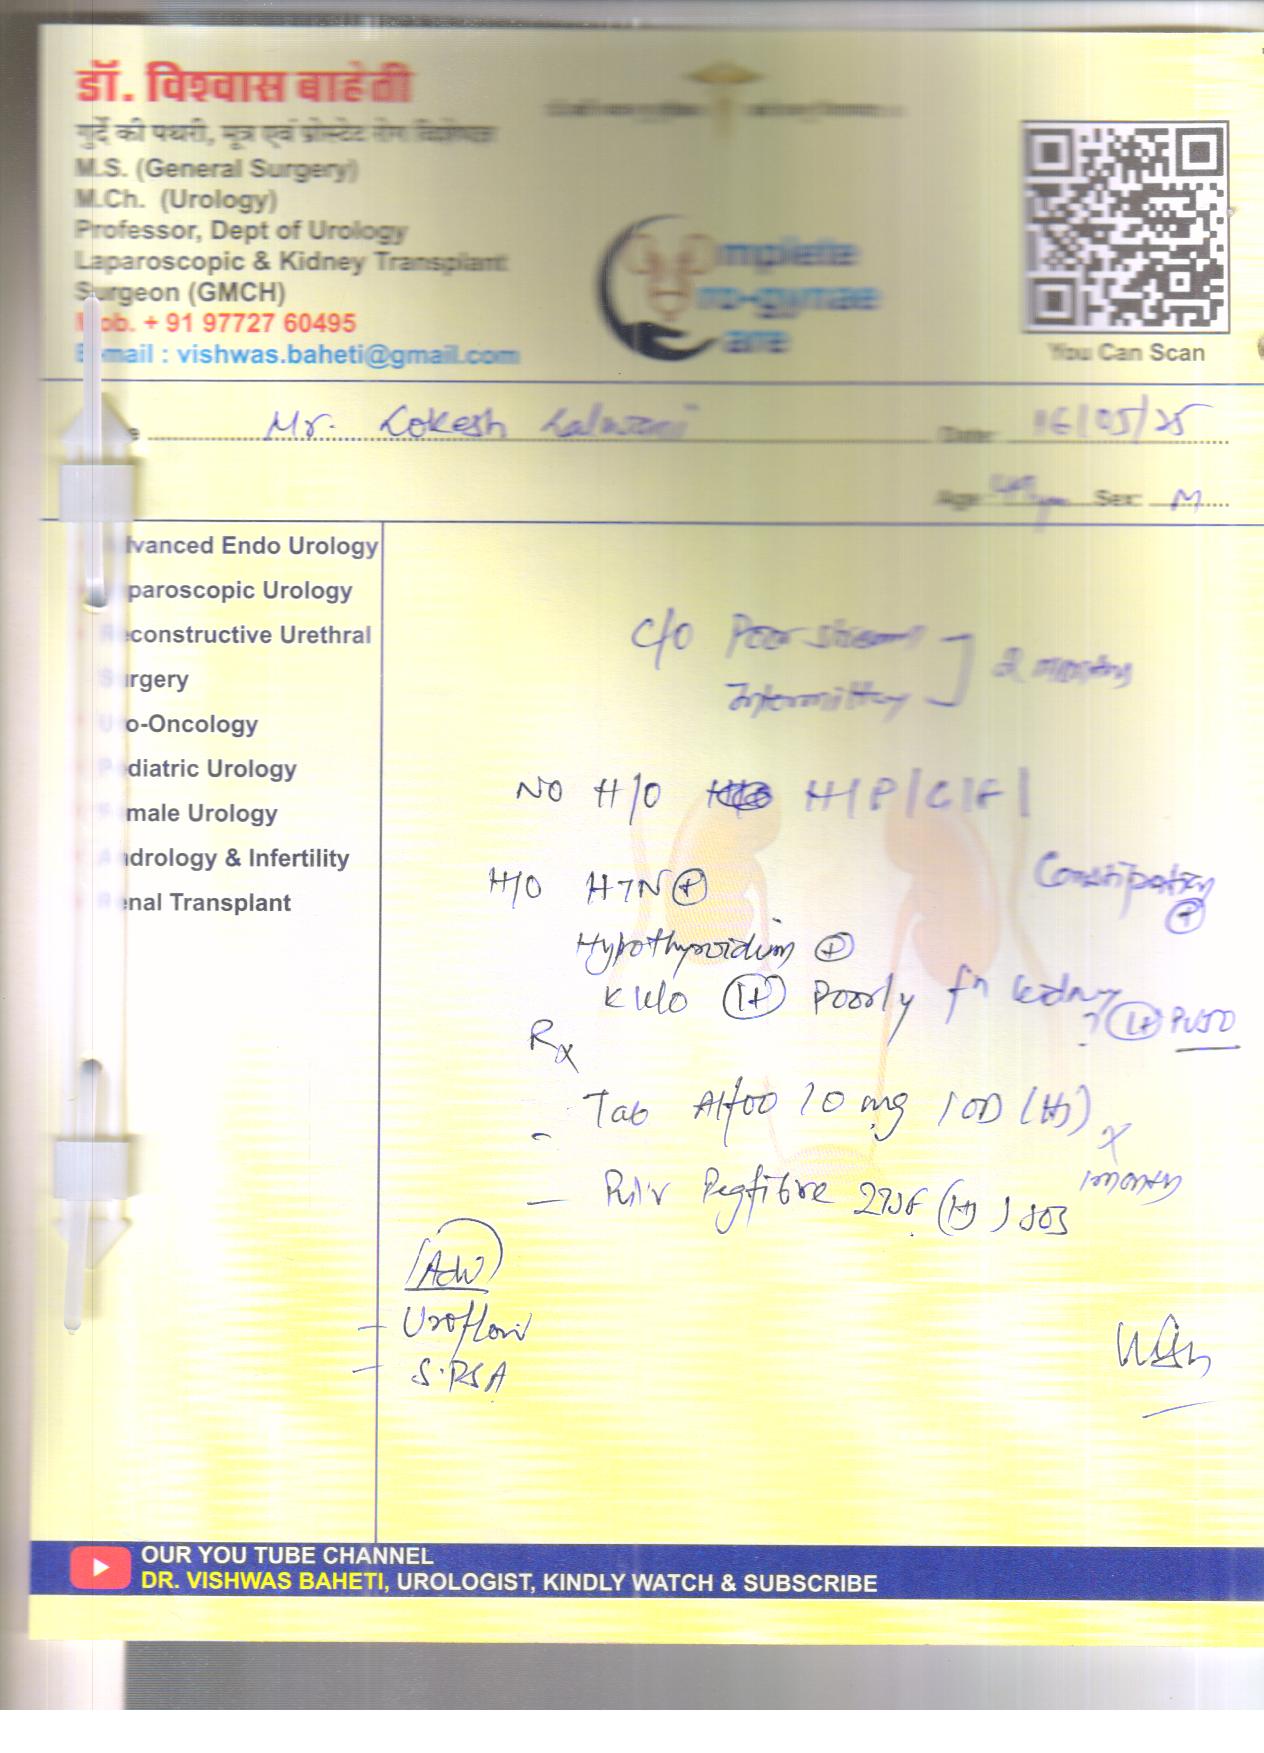 डॉ. विश्वास बाहेती
गुर्दे की पथरी, मूत्र एवं प्रोस्टेट रोग विशेषज्ञ
M.S. (General Surgery)
M.Ch. (Urology)
Professor, Dept of Urology
Laparoscopic & Kidney Transplant
Surgeon (GMCH)
Mob. + 91 97727 60495
E-mail : vishwas.baheti@gmail.com
mplete
ro-gynae
are
You Can Scan
Mr. Lokesh Lalwani
Date: 16/05/25
Age: Sex: M
Advanced Endo Urology
Laparoscopic Urology
Reconstructive Urethral
Surgery
Uro-Oncology
Pediatric Urology
Female Urology
Andrology & Infertility
Renal Transplant
C/O Poor stream
Intermittency 2 months
NO H/O H/P/C/F/
H/O HTN (+)
Constipation (+)
Hypothyroidism (+)
K/c/o (Lt) Poorly fn kidney
? (Lt) PUJO
Rx
- Tab Alfoo 10 mg 1 OD (HS) x 1 month
- Pulv Pegfibre 2TSF (HS) SOS
Adv
- Uroflow
- S.PSA
OUR YOU TUBE CHANNEL
DR. VISHWAS BAHETI, UROLOGIST, KINDLY WATCH & SUBSCRIBE